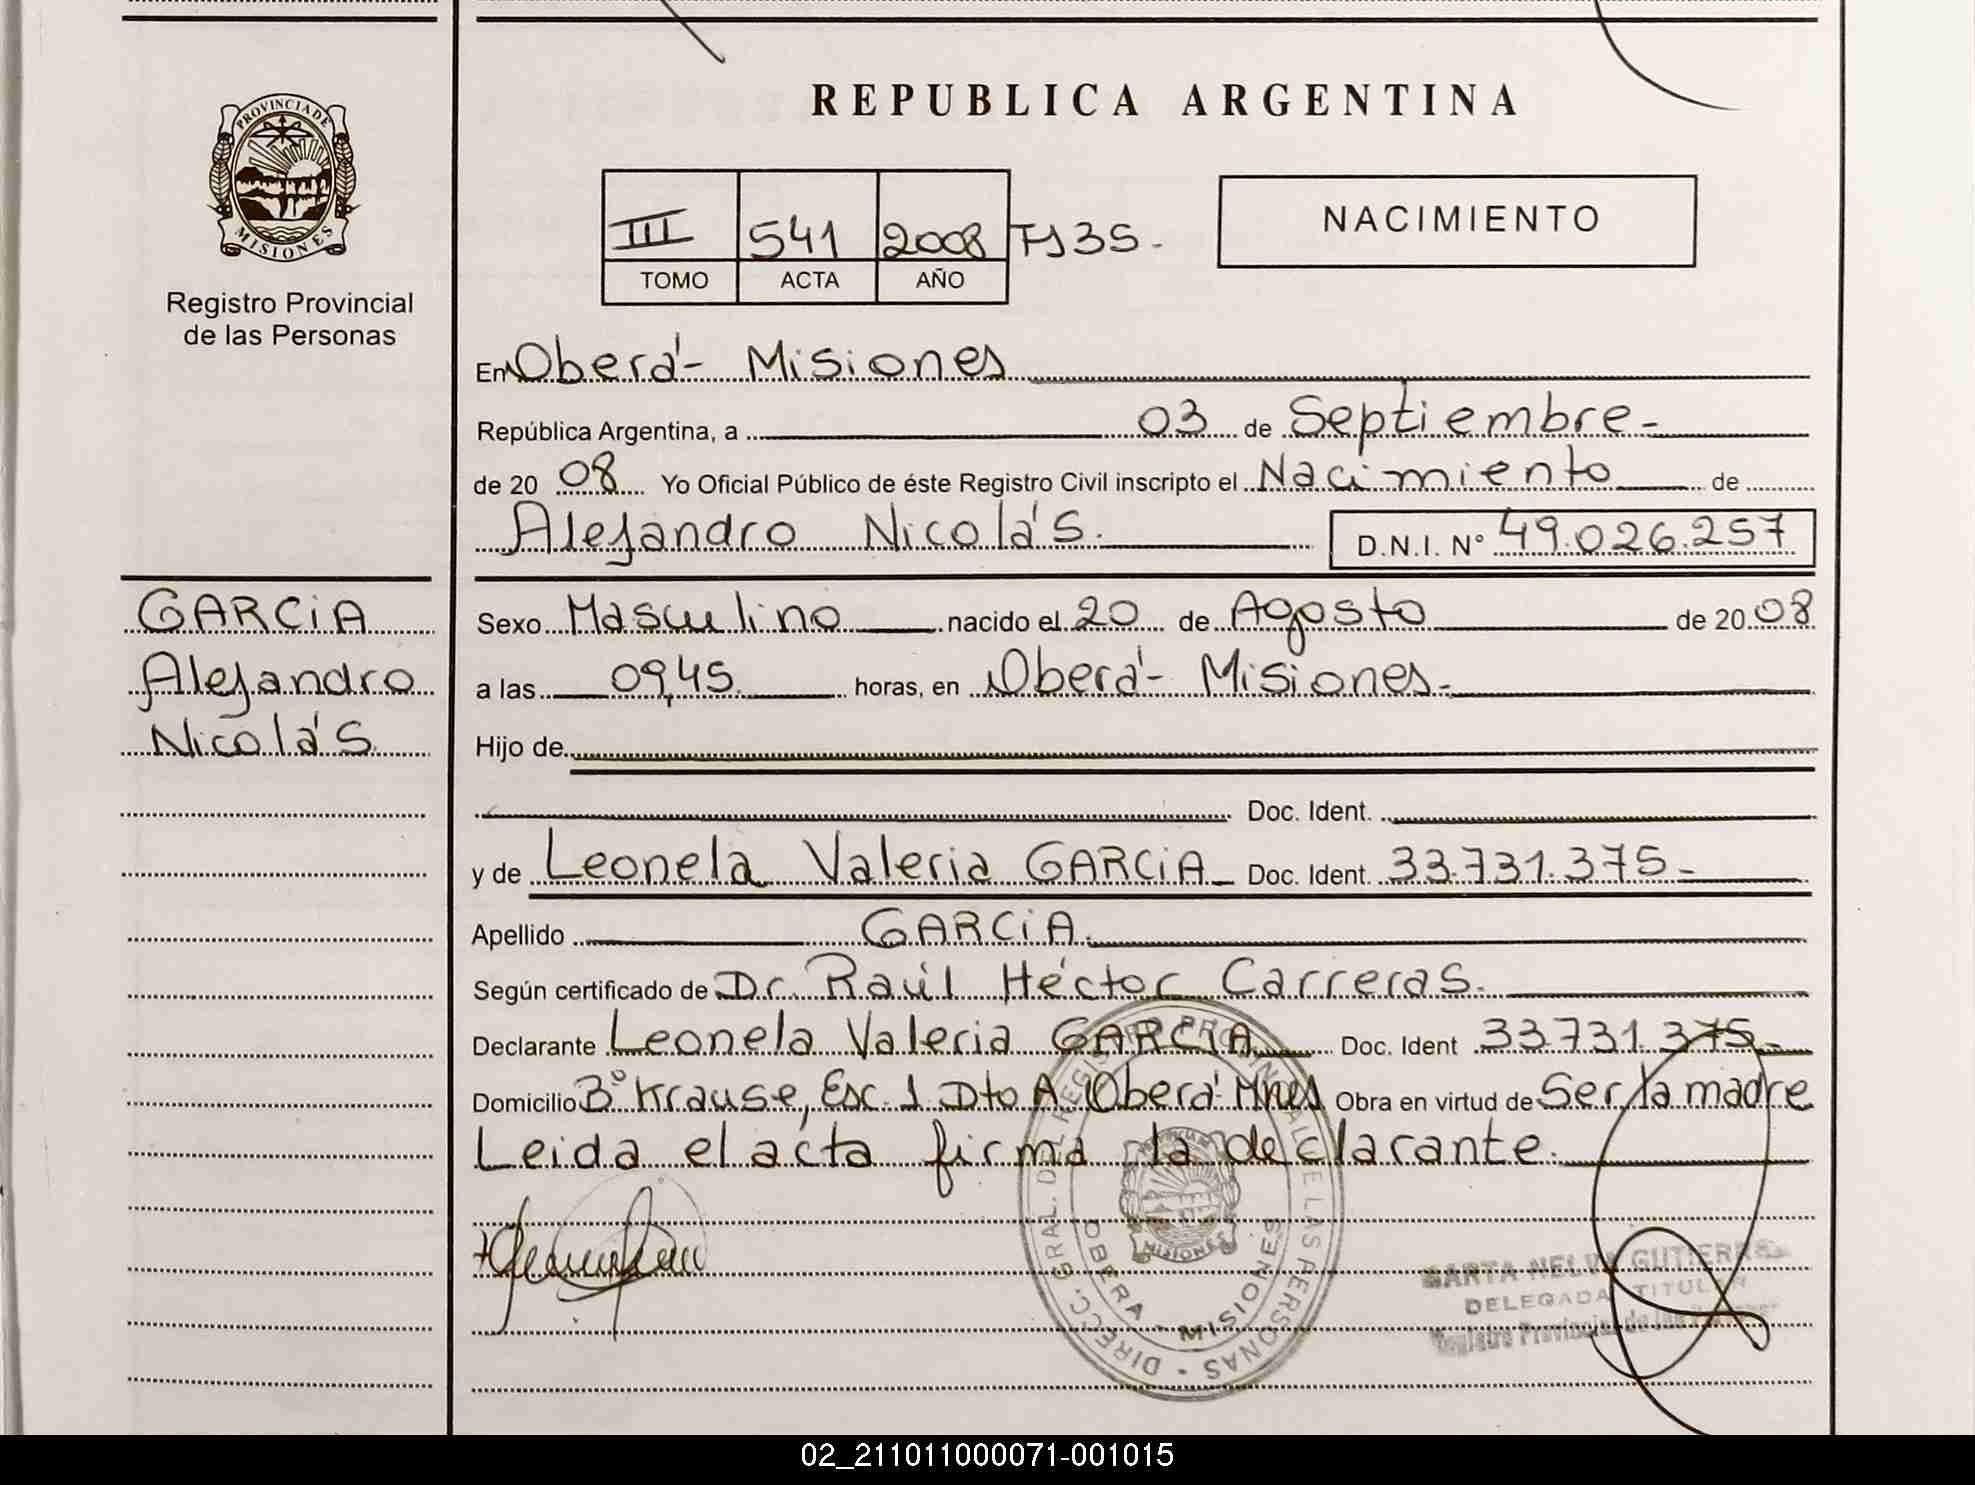 REPUBLICA ARGENTINA
PROVINCIA DE
MISIONES
Registro Provincial
de las Personas
III 541 2008 FJ35.
TOMO ACTA AÑO
NACIMIENTO
En Oberá- Misiones
República Argentina, a 03 de Septiembre-
de 20 08 Yo Oficial Público de éste Registro Civil inscripto el Nacimiento de
Alejandro Nicolás. D.N.I. N° 49.026.257
GARCiA
Alejandro
Nicolás
Sexo Masculino nacido el 20 de Agosto de 20 08
a las 09,45 horas, en Oberá- Misiones-
Hijo de
Doc. Ident.
y de Leonela Valeria GARCiA Doc. Ident. 33.731.375-
Apellido GARCiA.
Según certificado de Dr. Raúl Héctor Carreras.
Declarante Leonela Valeria GARCIA Doc. Ident 33.731.375-
Domicilio B° Krause, Esc. 1 Dto A. Oberá Mnes Obra en virtud de Ser la madre
Leida el acta firma la declarante.
DIRECC. GRAL. DEL REGISTRO PROVINCIAL DE LAS PERSONAS -
OBERA - MISIONES
MISIONES
NELVA GUTIERREZ
DELEGADA TITULAR
Registro Provincial de las
02_211011000071-001015